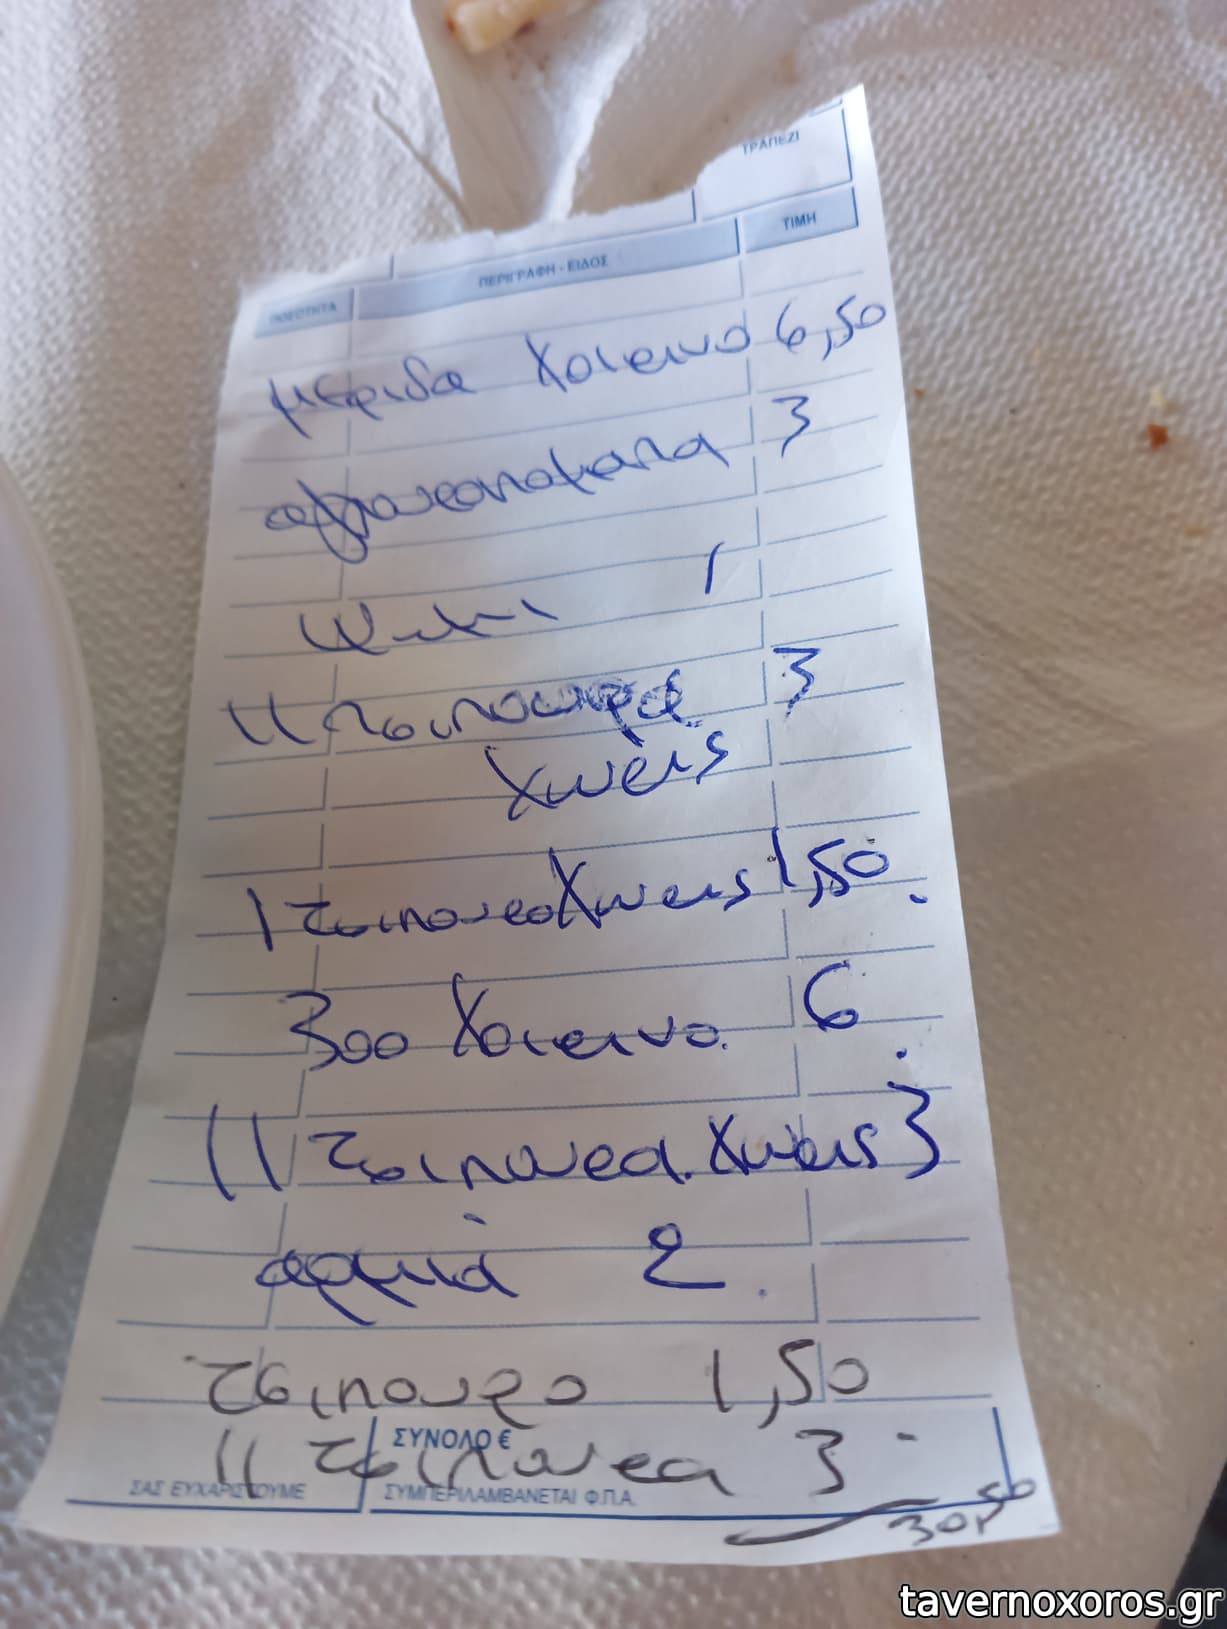 ΤΡΑΠΕΖΙ
ΠΟΣΟΤΗΤΑ ΠΕΡΙΓΡΑΦΗ - ΕΙΔΟΣ ΤΙΜΗ
μεριδα χοιρινο 6,50
αγγουροντοματα 3
ψωμι 1
11 τσιπουρα 3
χωρις
1 τσιπουρο χωρις 1,50
300 χοιρινο. 6
11 τσιπουρα. χωρις 3
αρμιά 2.
τσιπουρο 1,50
ΣΥΝΟΛΟ €
11 τσιπουρα 3
ΣΑΣ ΕΥΧΑΡΙΣΤΟΥΜΕ ΣΥΜΠΕΡΙΛΑΜΒΑΝΕΤΑΙ Φ.Π.Α.
30,50
tavernoxoros.gr